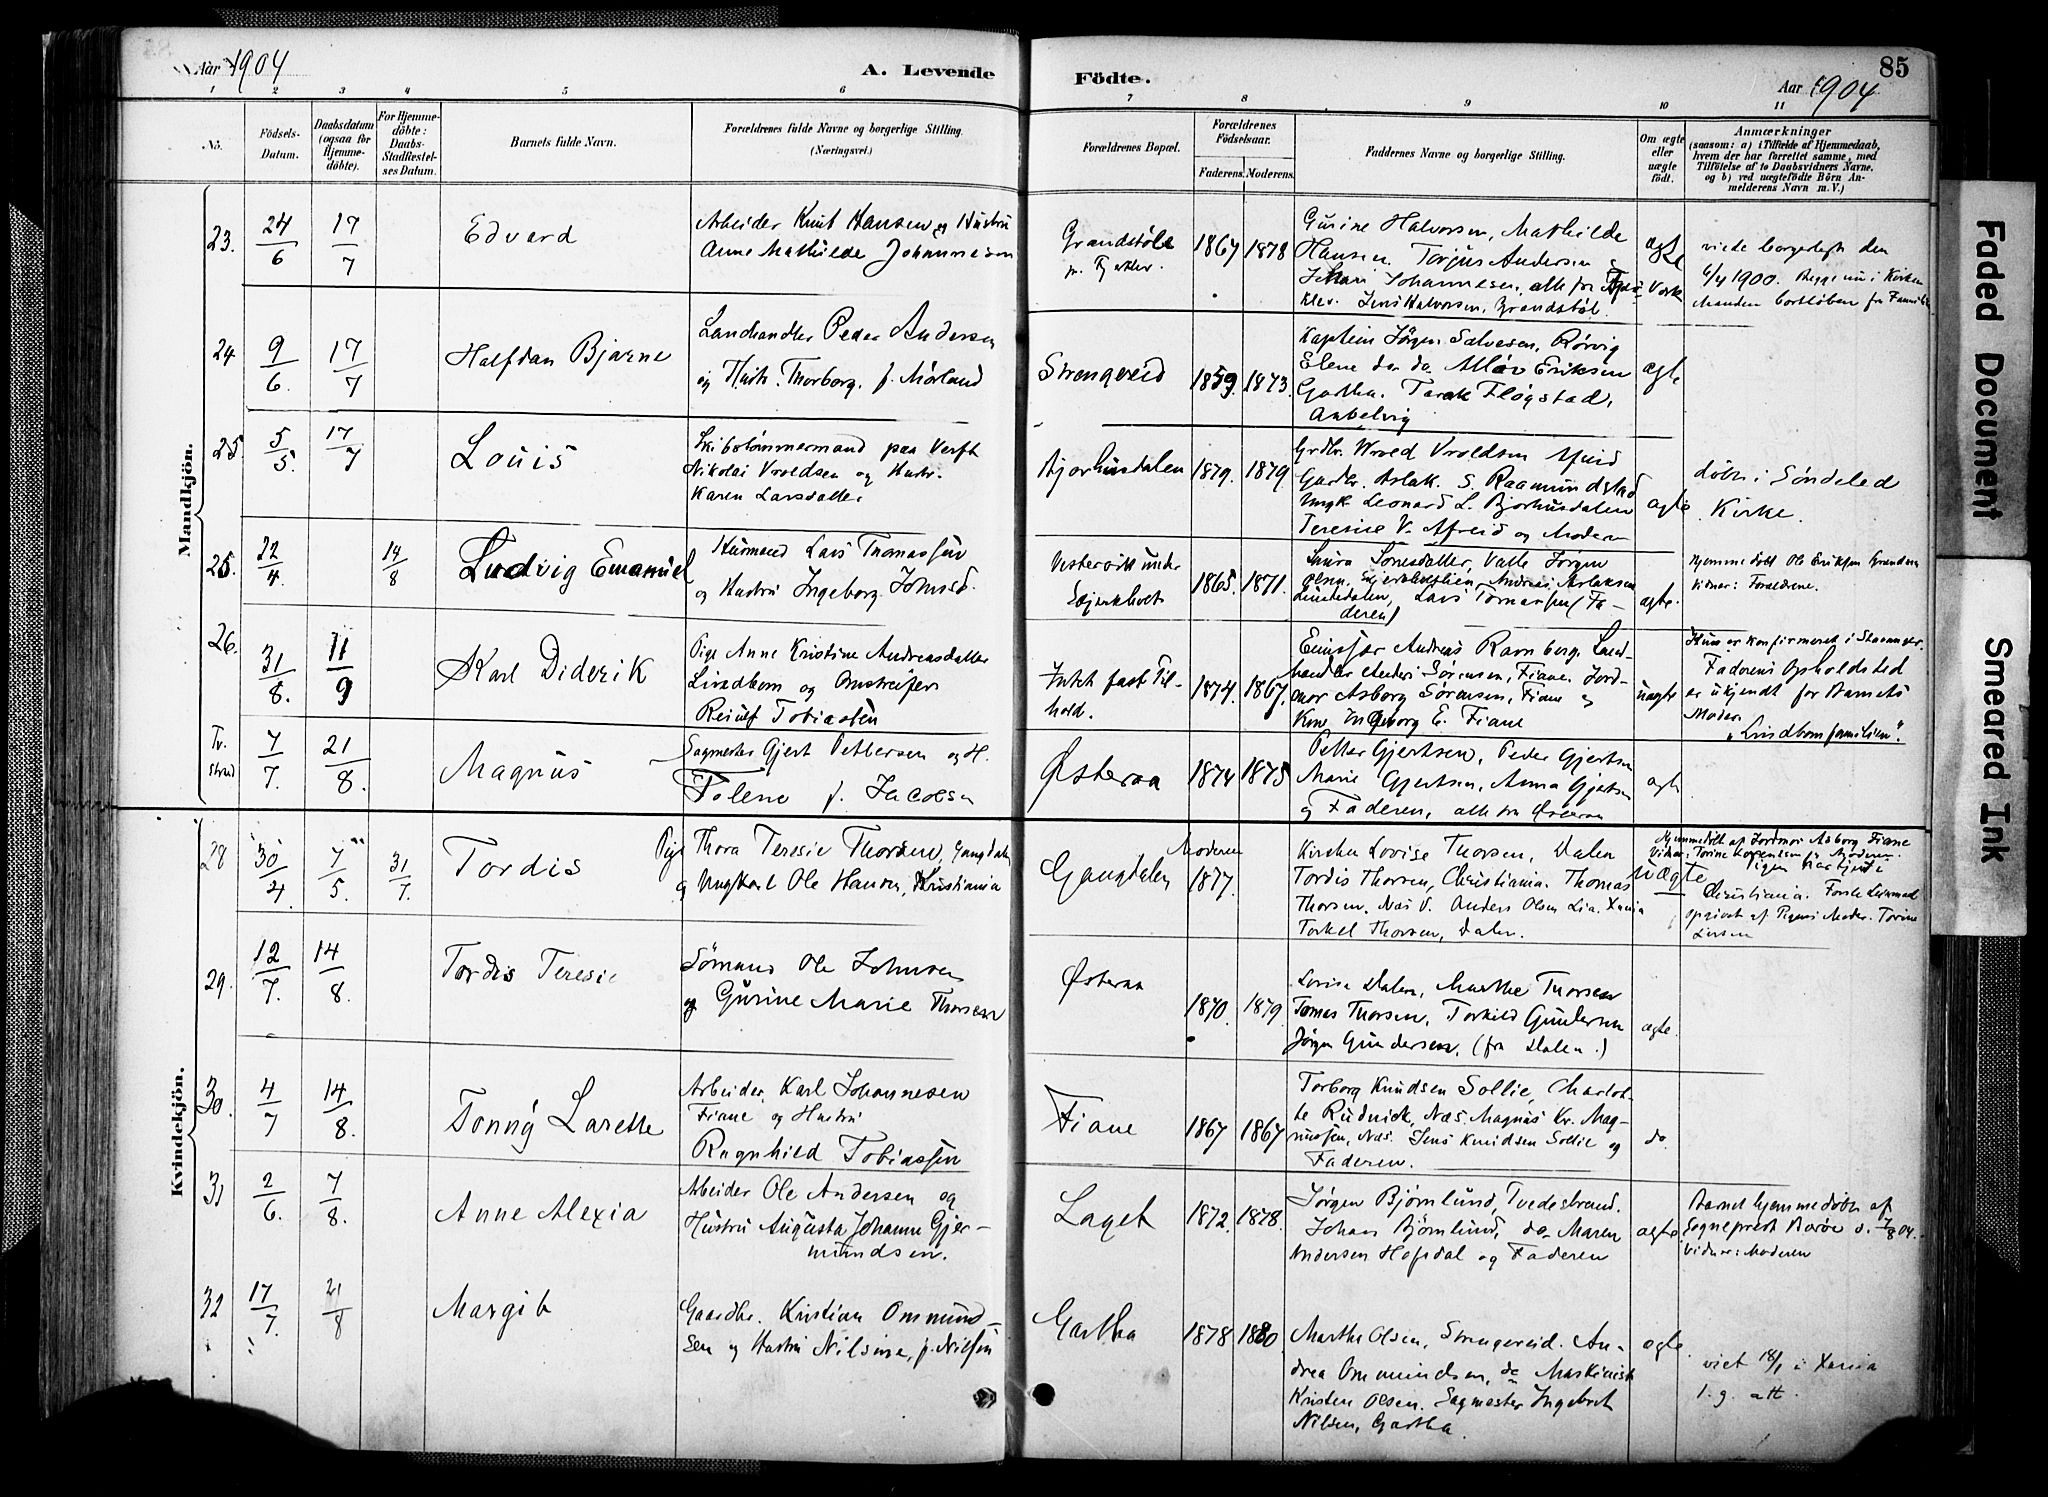 Aar 1904
A. Levende
Födte.
Aar 1904
85
1 2 3 4 5 6 7 8 9 10 11
No.
Födsels-
Datum.
Daabsdatum
(ogsaa for
Hjemme-
döbte).
For Hjemme-
döbte:
Daabs-
Stadfæstel-
ses Datum.
Barnets fulde Navn.
Forældrenes fulde Navne og borgerlige Stilling.
(Næringsvei.)
Forældrenes Bopæl.
Forældrenes
Födselsaar.
Faderens. Moderens.
Faddernes Navne og borgerlige Stilling.
Om ægte
eller
uægte
födt.
Anmærkninger
(saasom: a) i Tilfælde af Hjemmedaab,
hvem der har forrettet samme, med
Tilföielse af to Daabsvidners Navne,
og b) ved uægtefödte Börn An-
melderens Navn m. V.)
Mandkjön.
23. 24/6 17/7
Edvard
Arbeider Knut Hansen og Hustru
Anne Mathilde Johannesen
Grandstöl
1867 1878
Gurine Halvorsen, Mathilde
Hansen. Torjus Andersen
Johannesen, alle fra
Jens Halvorsen, Grandstöl.
ægte
viede borgerligt den
6/4 1900.
24 9/6. 17/7
Halfdan Bjarne
Landhandler Peder Andersen
og Hustr. Thorborg, f. Mörland
Strengereid
1859 1873.
Kaptein Jörgen Salvesen, Rörvig
Elene do do Eriksen
Gartha. Tarak Flögstad,
ægte
25. 5/5. 17/7
Louis
Skibstömmermand paa Verft
Nikolai Vroldsen og Hustr.
Karen Larsdatter
Bjorhusdalen
1879. 1879
Grdbr. Wrold Vroldsen
Gardbr. Aslak S. Raamundstad
Ungk. Leonard L. Bjorhusdalen
Teresine V. og Moderen
ægte
döbt i Söndeled
Kirke.
25. 22/4. 14/8
Ludvig Emanuel
Husmand Lars Thomassen
og Hustru Ingeborg Jonsd.
1865. 1871.
Jonsdatter, Valle Jörgen
Olsen, Andreas Aslaksen
Lundedalen, Lars Tomassen (Fa-
deren)
ægte.
Hjemmedöbt Ole Eriksen
Vidner: Forældrene.
26. 31/8. 11/9
Karl Diderik
Pige Anne Kristine Andreasdatter
Lindbom og Omstreifer
Reiulf Tobiassen
Intet fast Til-
hold.
1874. 1867.
Andreas Ravnberg. Land-
handler Anders Sörensen, Fiane. Jord-
mor Asborg Sörensen, Fiane og
Kone Ingeborg E. Fiane
uægte
Hun er konfirmeret i
Faderens Opholdsted
er ukjendt for Barnets
Moder.
"Lindbomfamilien".
Tv.
strand 7/7. 21/8.
Magnus
Sagmester Gjert Pettersen og H.
Tolene f. Jacobsen
Österaa
1874 1875
Petter Gjertsen, Peder Gjertsen
Marie Gjertsen, Anna Gjertsen
og Faderen, alle fra Österaa
ægte
Kvindekjön.
28 30/4 7/5. 31/7.
Tordis
Pige Thora Teresie Thorsen, Gangdalen
og Ungkarl Ole Hansen, Kristiania
Gangdalen
Moderen
1877.
Kirsten Lovise Thorsen, Dalen
Tordis Thorsen, Christiania. Thomas
Thorsen, Næs V. Anders Olsen Lia. Xania
Torkel Thorsen, Dalen.
uægte
Hjemmedöbt af Jordmor Asborg Fiane
Pigen har tjent i
Christiania.
opgivet af Pigens Moder. Torine
29. 12/7. 14/8.
Tordis Teresie
Sömand Ole Johnsen
og Gurine Marie Thorsen
Österaa
1870. 1879.
Lovise Dalen, Marthe Thorsen
Tomas Thorsen, Torkild Gundersen
Jörgen Gundersen, (fra Dalen.)
ægte.
30. 4/7 14/8.
Tonny Larette
Arbeider Karl Johannesen
Fiane og Hustru
Ragnhild Tobiassen
Fiane
1867 1867
Torborg Knudsen Sollie, Charlot-
te Rudvick, Næs. Magnus Kr. Mag-
nussen, Næs. Jens Knudsen Sollie og
Faderen.
do.
31 2/6. 7/8.
Anne Alexia
Arbeider Ole Andersen og
Hustru Augusta Johanne Gjer-
mundsen.
Laget
1872. 1878.
Jörgen Björnlund, Tvedestrand.
Johan Björnlund, do Maren
Andersen Hofsdal og Faderen
ægte.
Barnet hjemmedöbt af
Sogneprest Baröe d. 7/8 04.
Vidner: Moderen
32 17/7. 21/8
Margit
Gaardbr. Kristian Ommund-
sen og Hustru Nilsine, f. Nilsen
Gartha
1878 1880.
Marthe Olsen, Strengereid. An-
drea Ommundsen, do Maskinist
Kristen Olsen. Sagmester Ingebret
Nilsen, Gartha.
ægte.
viet 18/1 i Xania
l. g. att.
Faded Document
Smeared Ink